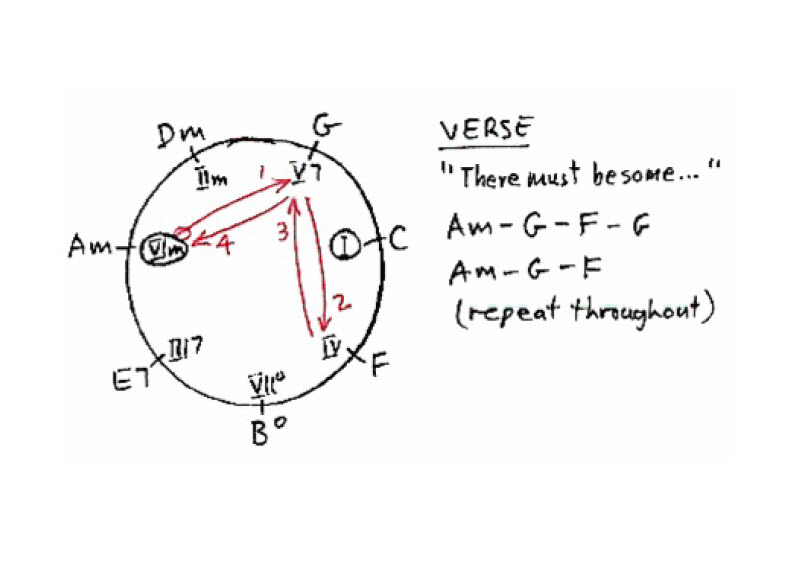 Dm
G
VERSE
IIm
1
V7
"There must be some... "
Am
VIm
4
3
I
C
Am - G - F - G
Am - G - F
2
(repeat throughout)
E7
III7
IV
F
VIIº
Bº